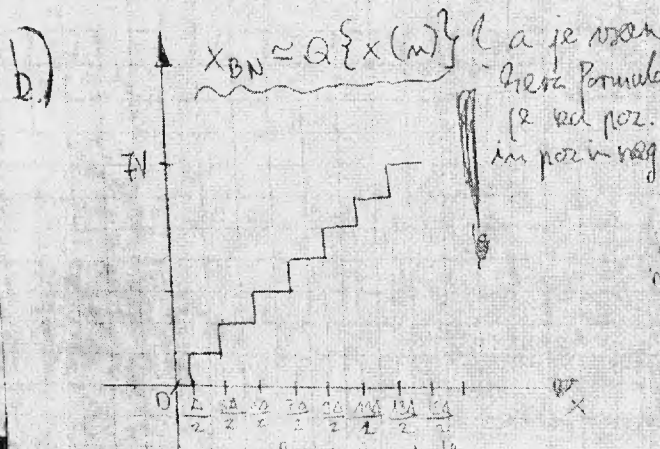 b.)
X_BN ≃ Q{x(n)} { a je vseen
formula
je za poz.
in poz in neg
7V
0 Δ/2 3Δ/2 5Δ/2 7Δ/2 9Δ/2 11Δ/2 13Δ/2
x